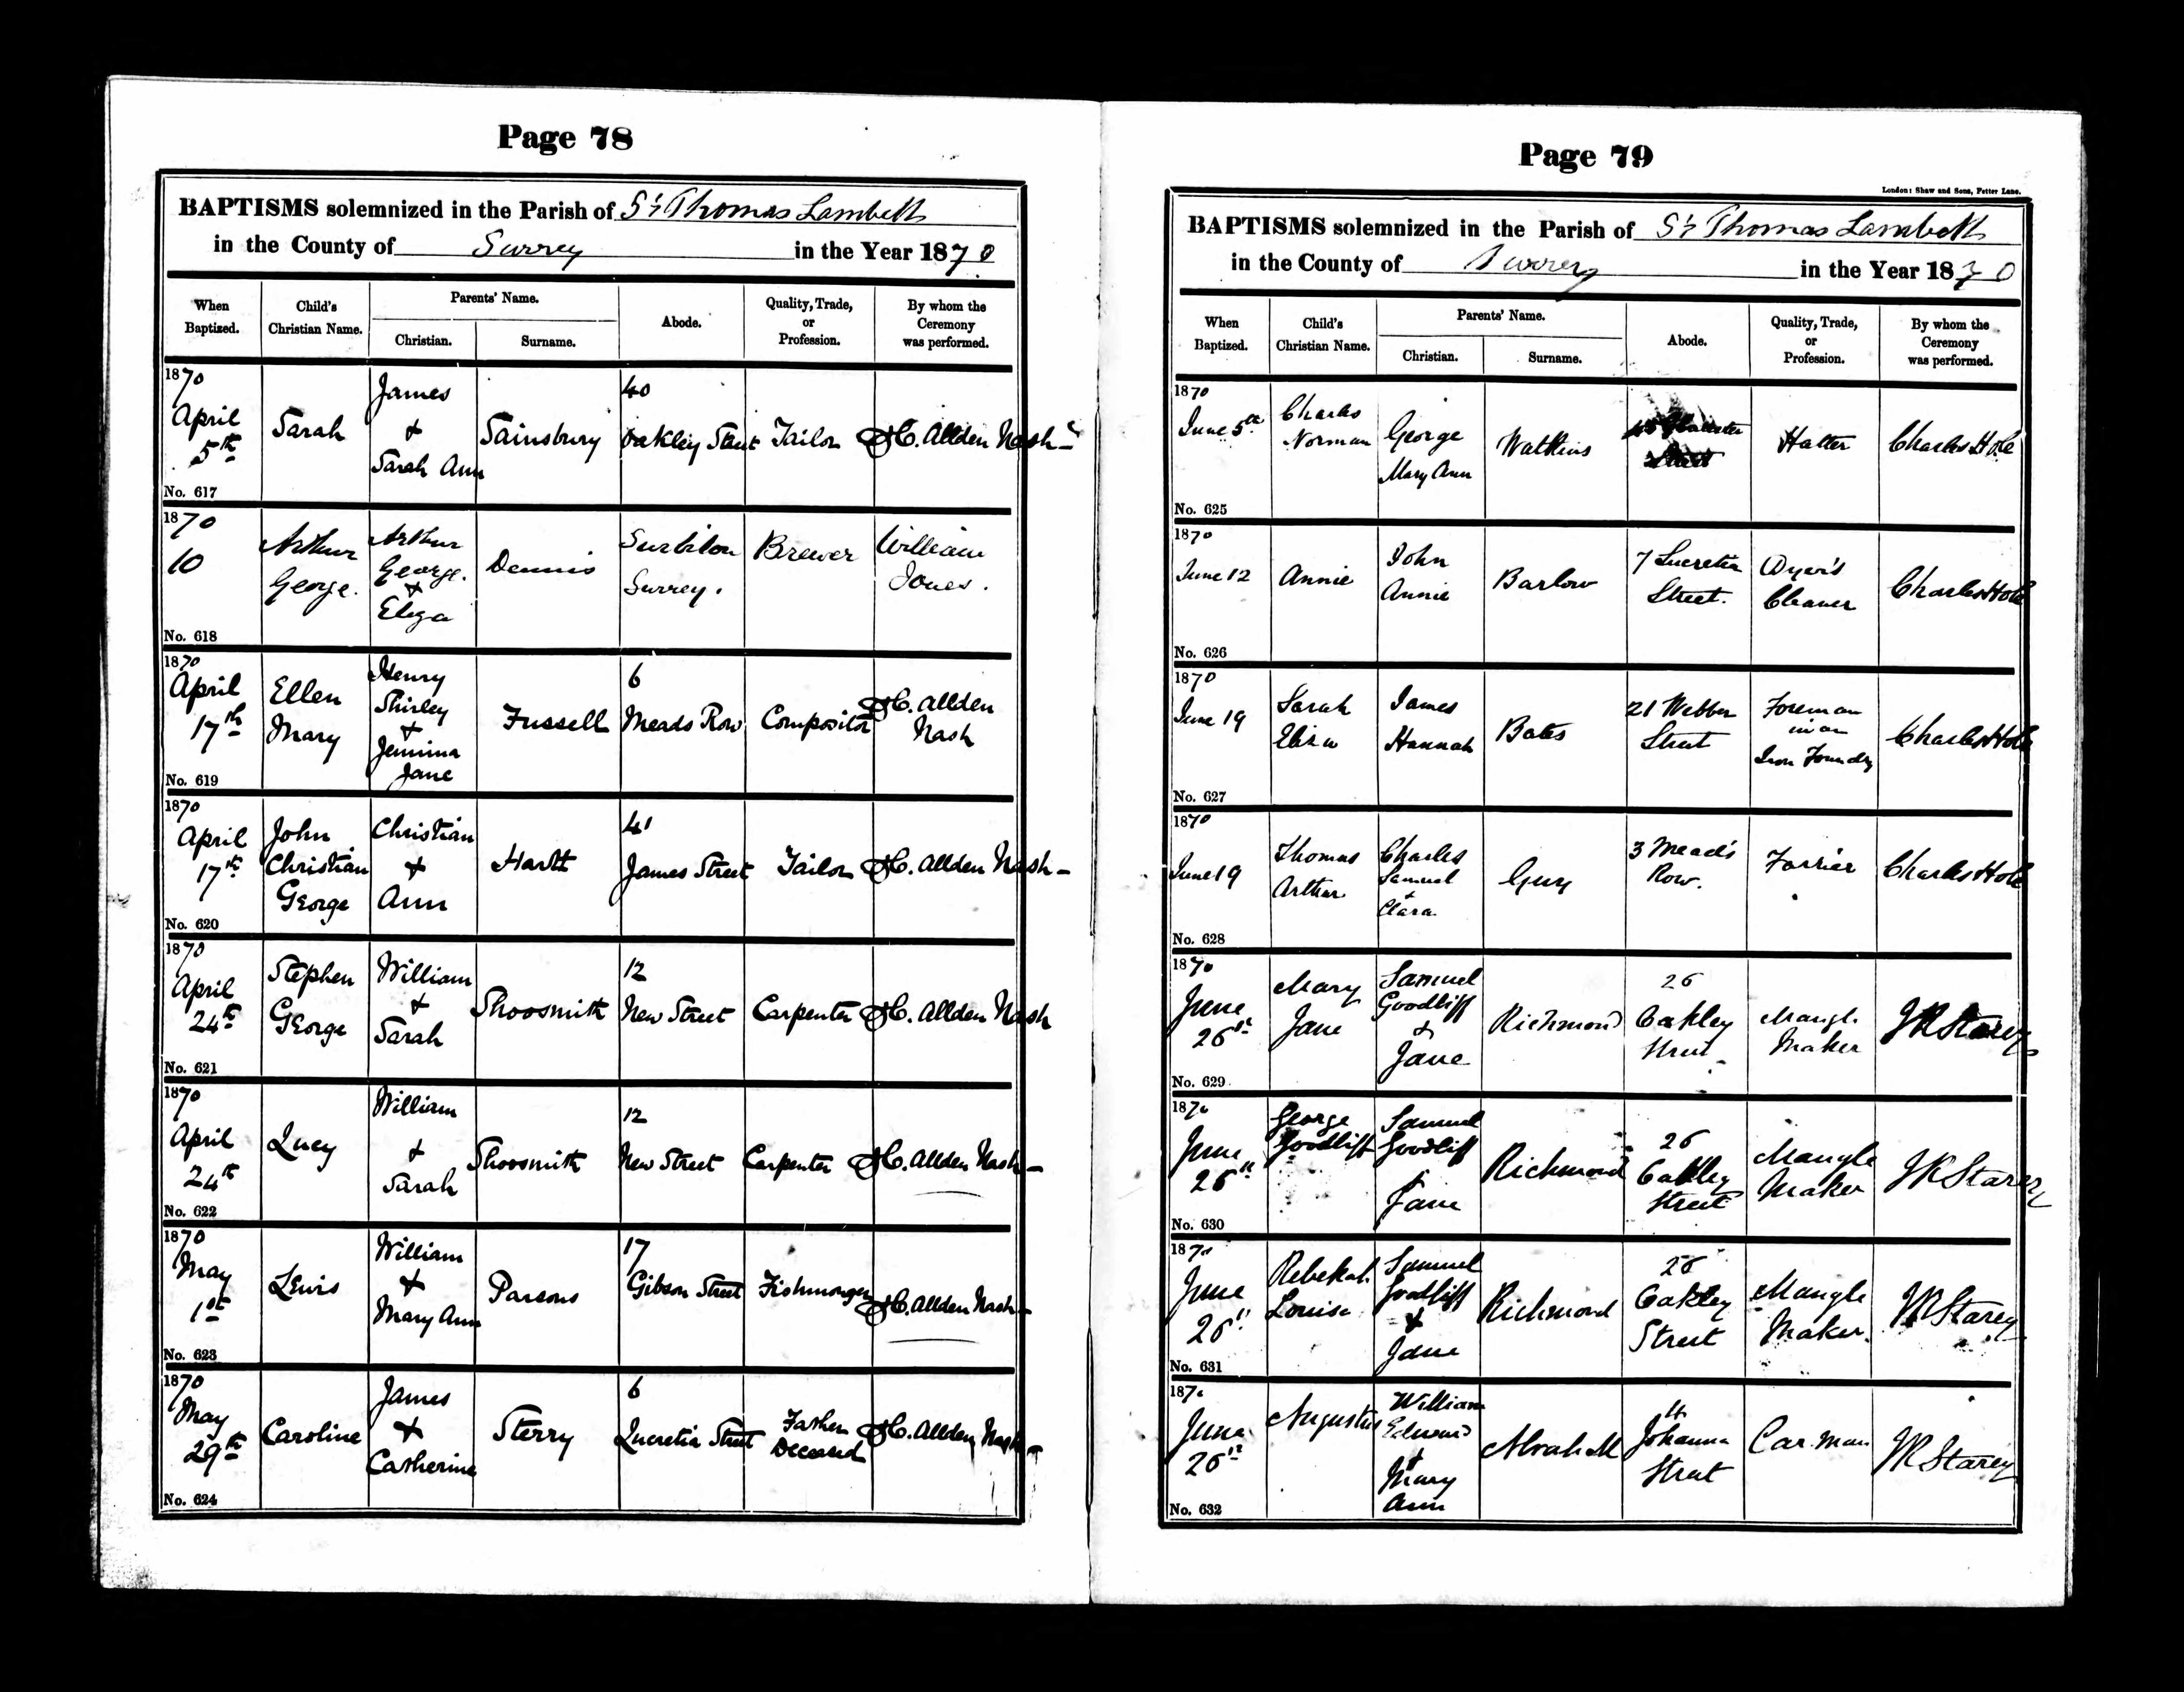 Page 78
BAPTISMS solemnized in the Parish of St Thomas Lambeth
in the County of Surrey in the Year 1870
When Baptized.
Child's Christian Name.
Parents' Name.
Christian.
Surname.
Abode.
Quality, Trade, or Profession.
By whom the Ceremony was performed.
1870
April
5th
No. 617
Sarah
James
&
Sarah Ann
Sainsbury
40
Oakley Street
Tailor
H. Allden Nash
1870
10
No. 618
Arthur
George.
Arthur
George.
&
Eliza
Dennis
Surbiton
Surrey.
Brewer
William
Jones.
1870
April
17th
No. 619
Ellen
Mary
Henry
Shirley
&
Jemima
Jane
Fussell
6
Meads Row
Compositor
H. Allden
Nash
1870
April
17th
No. 620
John
Christian
George
Christian
&
Ann
Hartt
41
James Street
Tailor
H. Allden Nash
1870
April
24th
No. 621
Stephen
George
William
&
Sarah
Shoosmith
12
New Street
Carpenter
H. Allden Nash
1870
April
24th
No. 622
Lucy
William
&
Sarah
Shoosmith
12
New Street
Carpenter
H. Allden Nash
1870
May
1st
No. 623
Lewis
William
&
Mary Ann
Parsons
17
Gibson Street
Fishmonger
H. Allden Nash
1870
May
29th
No. 624
Caroline
James
&
Catherine
Sterry
6
Lucretia Street
Father
Deceased
H. Allden Nash
Page 79
London: Shaw and Sons, Fetter Lane.
BAPTISMS solemnized in the Parish of St Thomas Lambeth
in the County of Surrey in the Year 1870
When Baptized.
Child's Christian Name.
Parents' Name.
Christian.
Surname.
Abode.
Quality, Trade, or Profession.
By whom the Ceremony was performed.
1870
June 5th
No. 625
Charles
Norman
George
Mary Ann
Watkins
Street
Hatter
Charles Hole
1870
June 12
No. 626
Annie
John
Annie
Barlow
7 Lucretia
Street.
Dyer's
Cleaner
Charles Hole
1870
June 19
No. 627
Sarah
Eliza
James
Hannah
Bates
21 Webber
Street
Foreman
in an
Iron Foundry
Charles Hole
1870
June 19
No. 628
Thomas
Arthur
Charles
Samuel
&
Clara
Guy
3 Mead's
Row.
Farrier
Charles Hole
1870
June
26th
No. 629
Mary
Jane
Samuel
Goodliff
&
Jane
Richmond
26
Oakley
Street
Mangle
Maker
JR Starey
1870
June
26th
No. 630
George
Goodliff
Samuel
Goodliff
Jane
Richmond
26
Oakley
Street
Mangle
Maker
JR Starey
1870
June
26th
No. 631
Rebekah
Louisa
Samuel
Goodliff
&
Jane
Richmond
26
Oakley
Street
Mangle
Maker.
JR Starey
1870
June
26th
No. 632
Augustus
William
Edward
&
Mary
Ann
Johanna
Street
Car-man
JR Starey